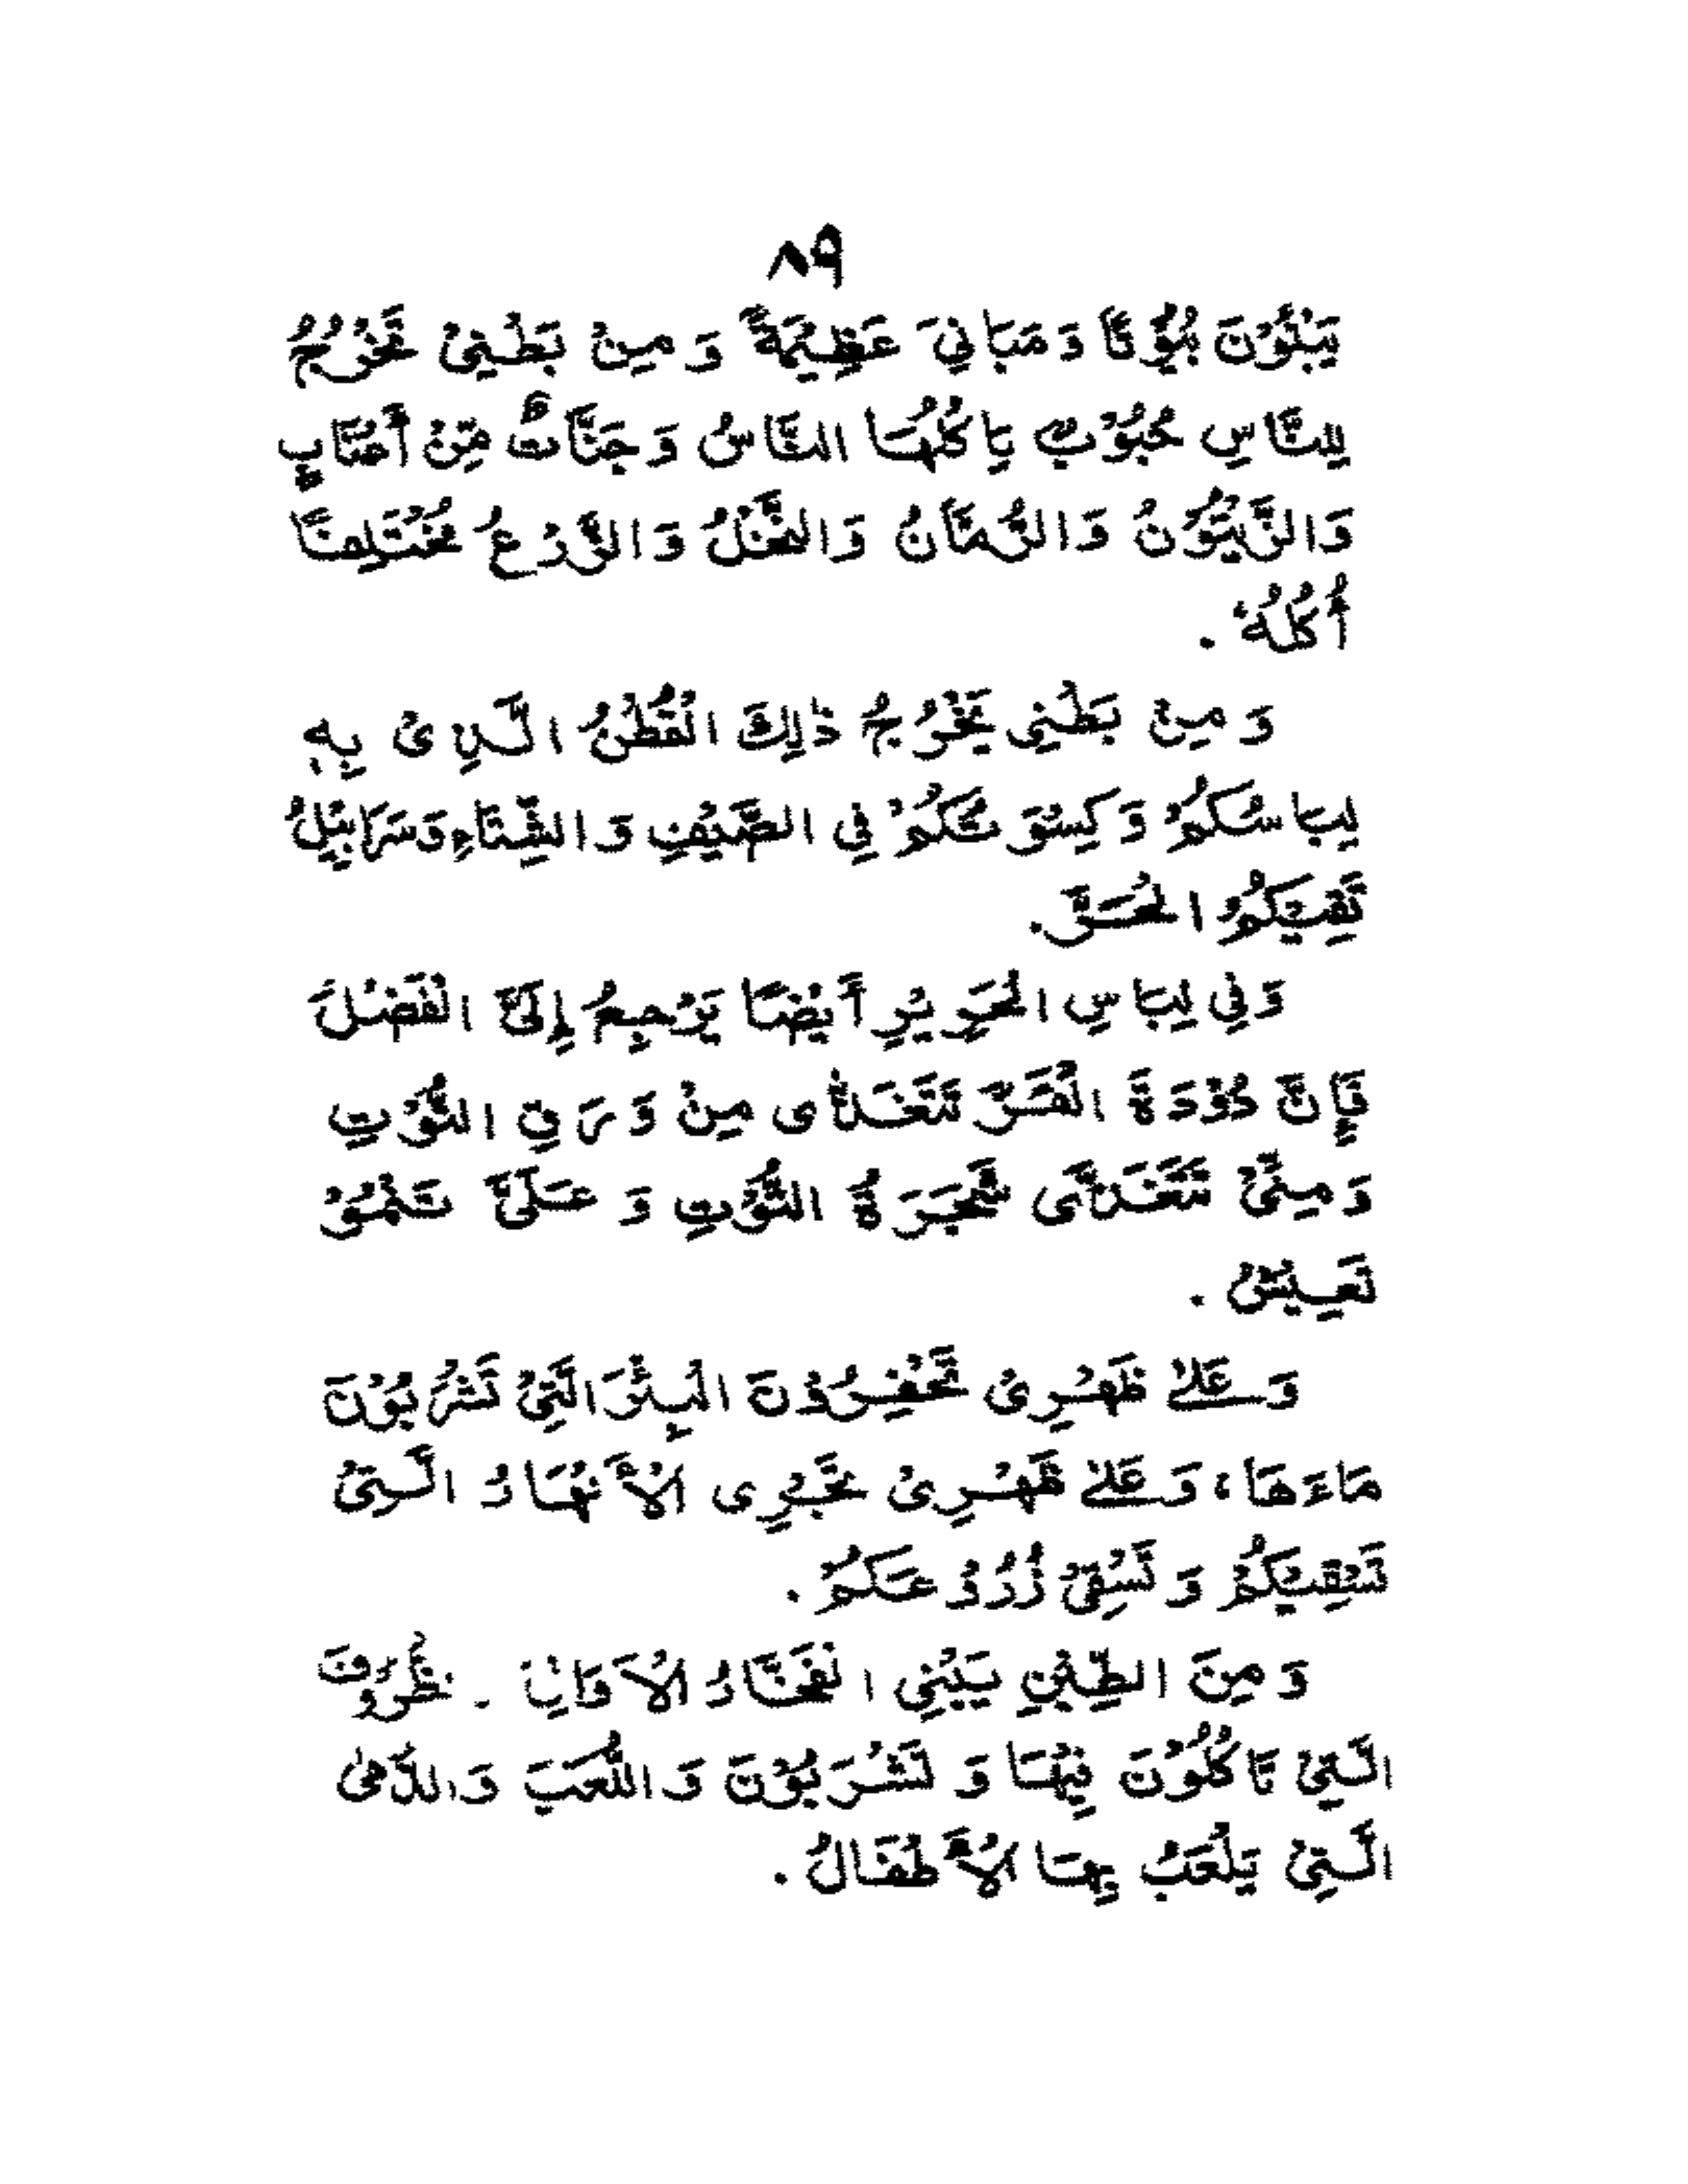 ٨٩
يَبْنُوْنَ بُيُوْتًا وَ مَبَانِيَ عَظِيْمَةً وَ مِنْ بَطْنِيْ تَخْرُجُ
لِلنَّاسِ حُبُوْبٌ يَاكُلُهَا النَّاسُ وَ جَنَّاتٌ مِّنْ أَعْنَابٍ
وَالزَّيْتُوْنُ وَالرُّمَّانُ وَالنَّخْلُ وَالزَّرْعُ مُخْتَلِفًا
أُكُلُهُ .
وَ مِنْ بَطْنِي يَخْرُجُ ذٰلِكَ الْقُطْنُ الَّذِيْ بِهِ
لِبَاسُكُمْ وَ كِسْوَتُكُمْ فِي الصَّيْفِ وَ الشِّتَاءِ وَسَرَابِيْلُ
تَقِيْكُمُ الْحَرَّ.
وَفِي لِبَاسِ الْحَرِيْرِ أَيْضًا يَرْجِعُ إِلَيَّ الْفَضْلُ
فَإِنَّ دُوْدَةَ الْقَزِّ تَتَغَذّٰى مِنْ وَرَقِ التُّوْتِ
وَ مِنِّيْ تَتَغَذَّى شَجَرَةُ التُّوْتِ وَ عَلَيَّ تَنْمُوْ
تَعِيْشُ .
وَ عَلٰى ظَهْرِيْ تَحْفِرُوْنَ الْبِئْرَ الَّتِيْ تَشْرَبُوْنَ
مَاءَهَا، وَ عَلٰى ظَهْرِيْ تَجْرِي الْأَنْهَارُ الَّتِيْ
تَسْقِيْكُمْ وَ تَسْقِيْ زُرُوْعَكُمْ.
وَ مِنَ الطِّيْنِ يَبْنِي الْفَخَّارُ الْأَوَانِيَ . ظُرُوْفَ
الَّتِيْ تَاكُلُوْنَ فِيْهَا وَ تَشْرَبُوْنَ وَ اللُّعَبَ وَ الدُّمٰى
الَّتِيْ يَلْعَبُ بِهَا الْأَطْفَالُ.